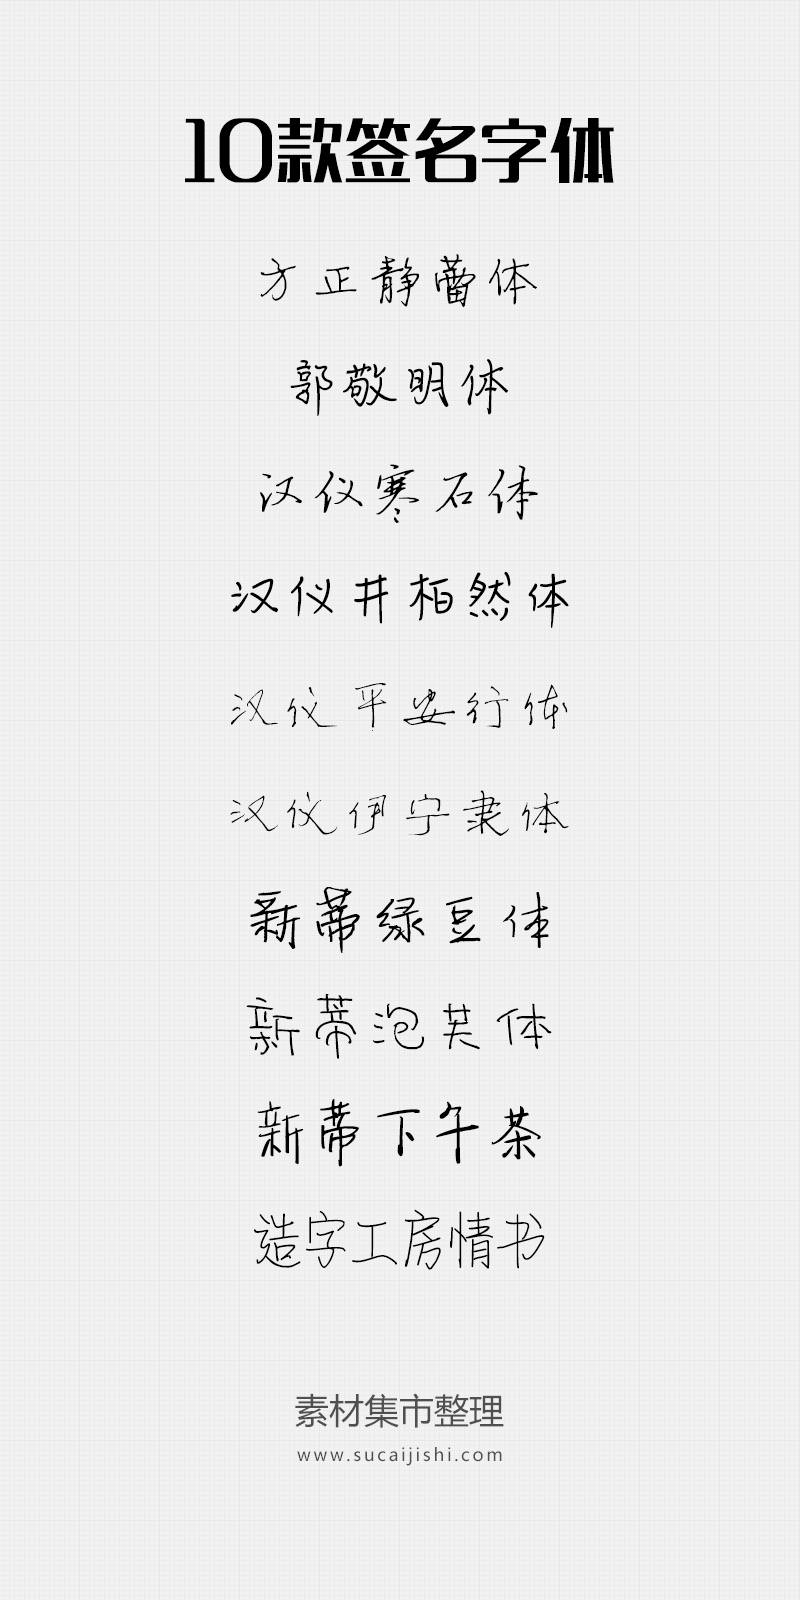 10款签名字体
方正静蕾体
郭敬明体
汉仪寒石体
汉仪井柏然体
汉仪平安行体
汉仪伊宁隶体
新蒂绿豆体
新蒂泡芙体
新蒂下午茶
造字工房情书
素材集市整理
www.sucaijishi.com